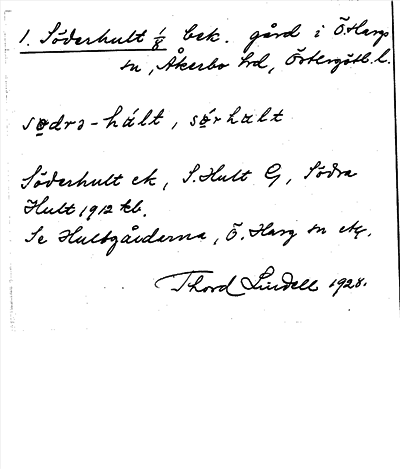 1. Söderhult 1/8 bek. gård i Ö. Hargs
sn, Åkerbo hd, Östergötl. l.
sødrə-hált, sǿrhalt
Söderhult ek, S. Hult G, Södra
Hult 1912 kb.
Se Hultgårdarna, Ö. Harg sn etc.
Thord Lindell 1928.